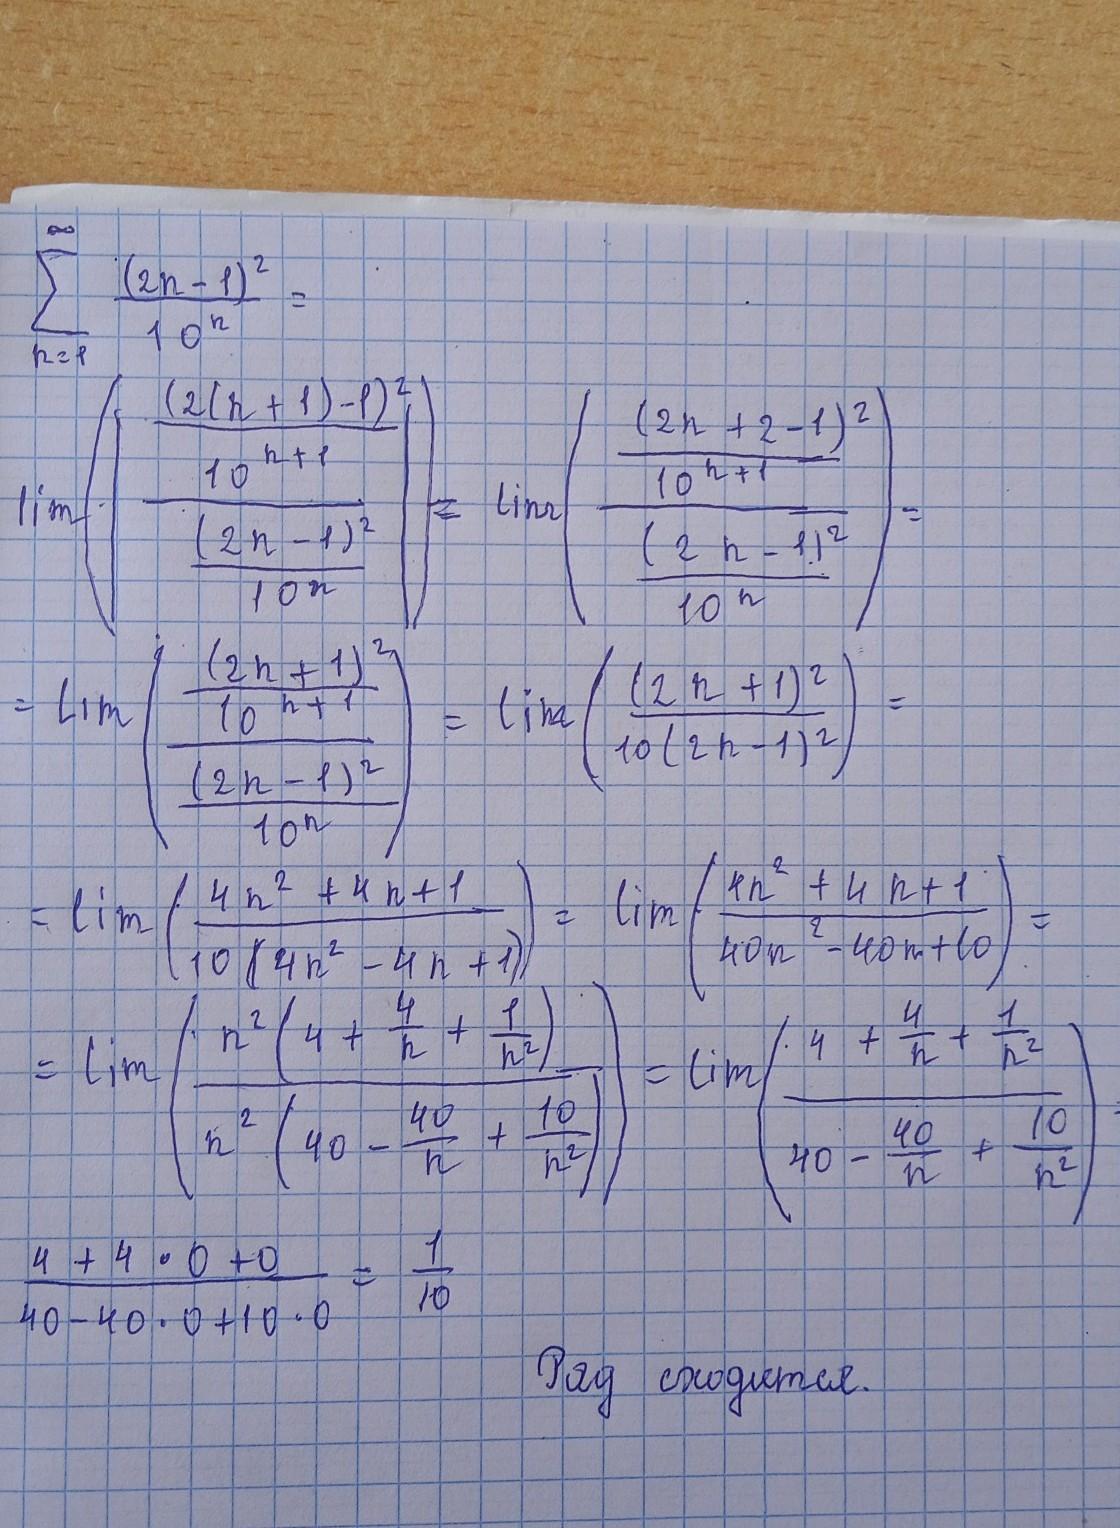 ∞
∑ (2n-1)² / 10ⁿ =
n=1
lim (| ((2(n+1)-1)² / 10ⁿ⁺¹) / ((2n-1)² / 10ⁿ) |) = lim (((2n+2-1)² / 10ⁿ⁺¹) / ((2n-1)² / 10ⁿ)) =
= lim (((2n+1)² / 10ⁿ⁺¹) / ((2n-1)² / 10ⁿ)) = lim ((2n+1)² / 10(2n-1)²) =
= lim ((4n²+4n+1) / 10(4n²-4n+1)) = lim ((4n²+4n+1) / (40n²-40n+10)) =
= lim (n²(4+4/n+1/n²) / n²(40-40/n+10/n²)) = lim ((4+4/n+1/n²) / (40-40/n+10/n²)) =
(4+4·0+0) / (40-40·0+10·0) = 1/10
Ряд сходится.